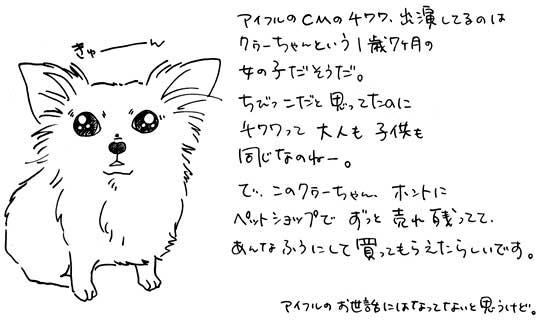 きゅーーん
アイフルのCMのチワワ、出演してるのは
クゥーちゃんという1歳7ヶ月の
女の子だそうだ。
ちびっこだと思ってたのに
チワワって大人も子供も
同じなのねー。
で、このクゥーちゃん、ホントに
ペットショップでずっと売れ残ってて、
あんなふうにして買ってもらえたらしいです。
アイフルのお世話にはなってないと思うけど。